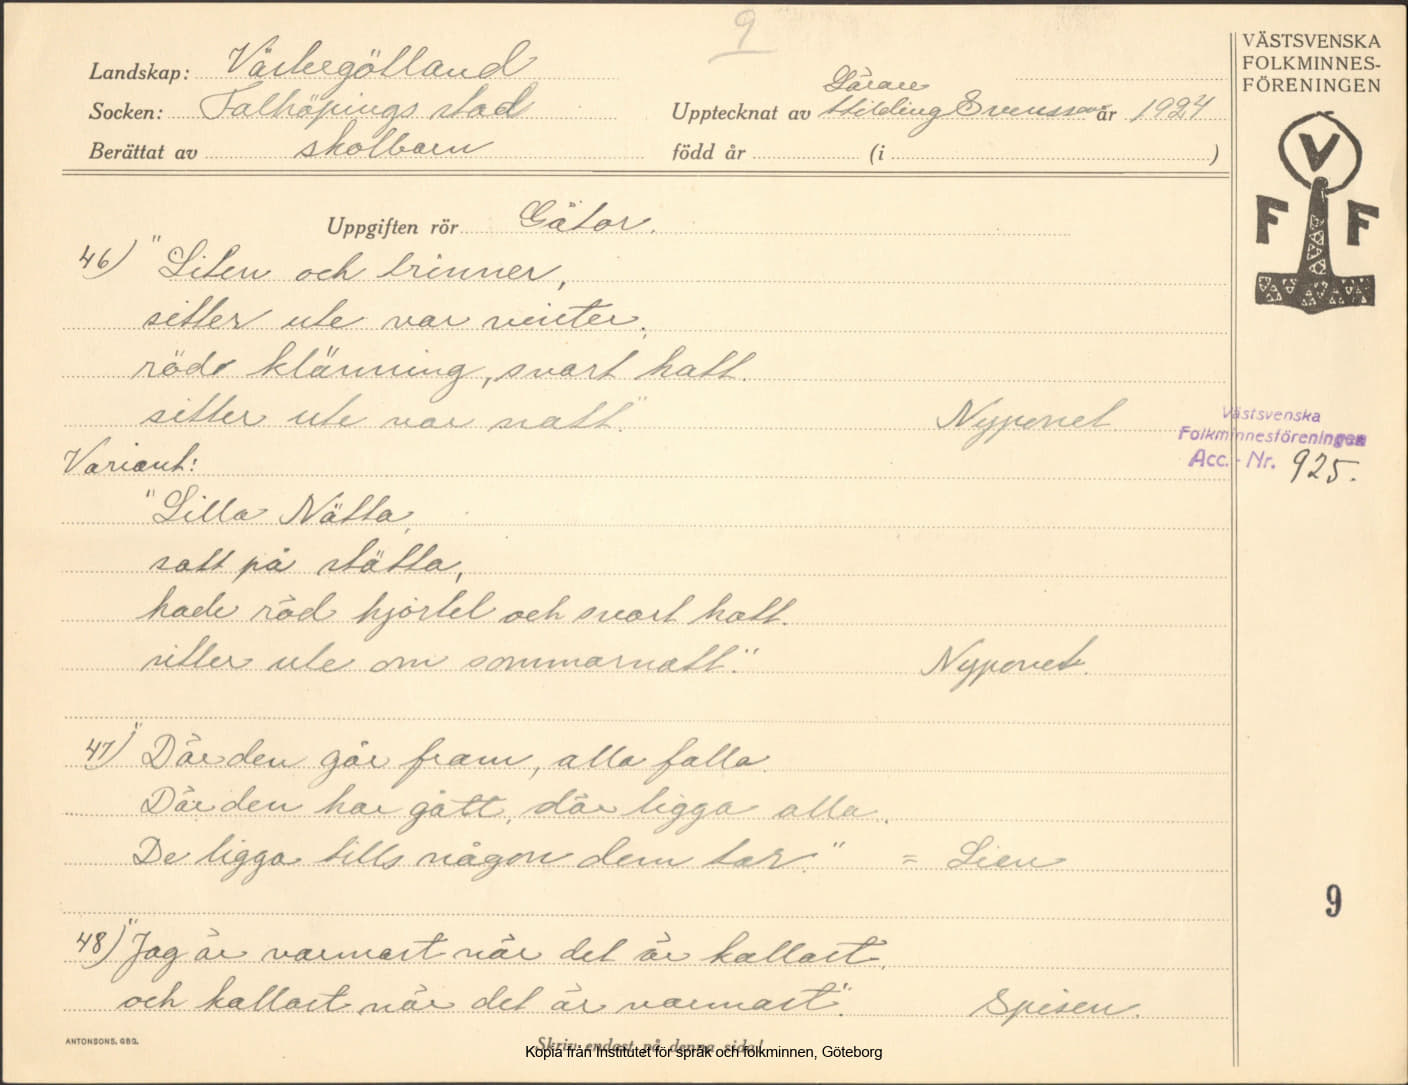 9
VÄSTSVENSKA
FOLKMINNES-
FÖRENINGEN
V
F F
Landskap: Västergötland
Socken: Falköpings stad
Berättat av skolbarn
Lärare
Upptecknat av Hilding Svensson år 1924
född år (i )
Uppgiften rör Gåtor.
46) "Liten och trinner,
sitter ute var vinter.
röd klänning, svart hatt.
sitter ute var natt." Nyponet
Västsvenska
Folkminnesföreningen
Acc. - Nr. 925.
Variant:
"Lilla Nätta,
satt på stätta,
hade röd kjortel och svart hatt.
sitter ute om sommarnatt." Nyponet.
47) "Där den går fram, alla falla.
Där den har gått, där ligga alla.
De ligga tills någon dem tar." = Lien
9
48) "Jag är varmast när det är kallast,
och kallast när det är varmast". Spisen.
ANTONSONS. GBG.
Skriv endast på denna sida!
Kopia från Institutet för språk och folkminnen, Göteborg